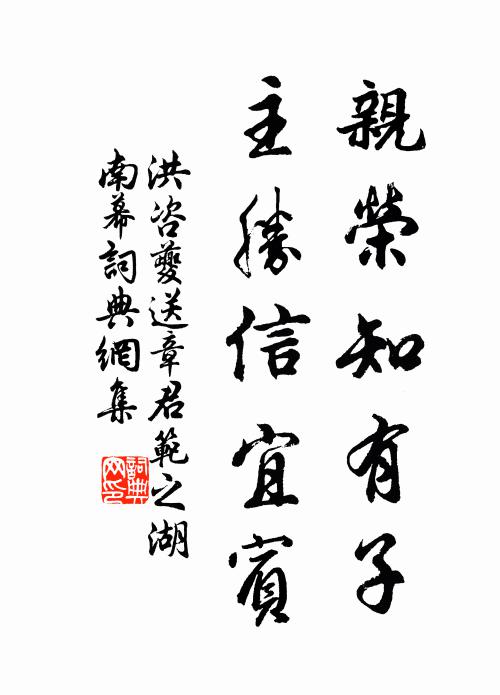 親榮知有子
主勝信宜賓
洪咨夔送章君範之湖
南幕詞典網集
詞典
网印